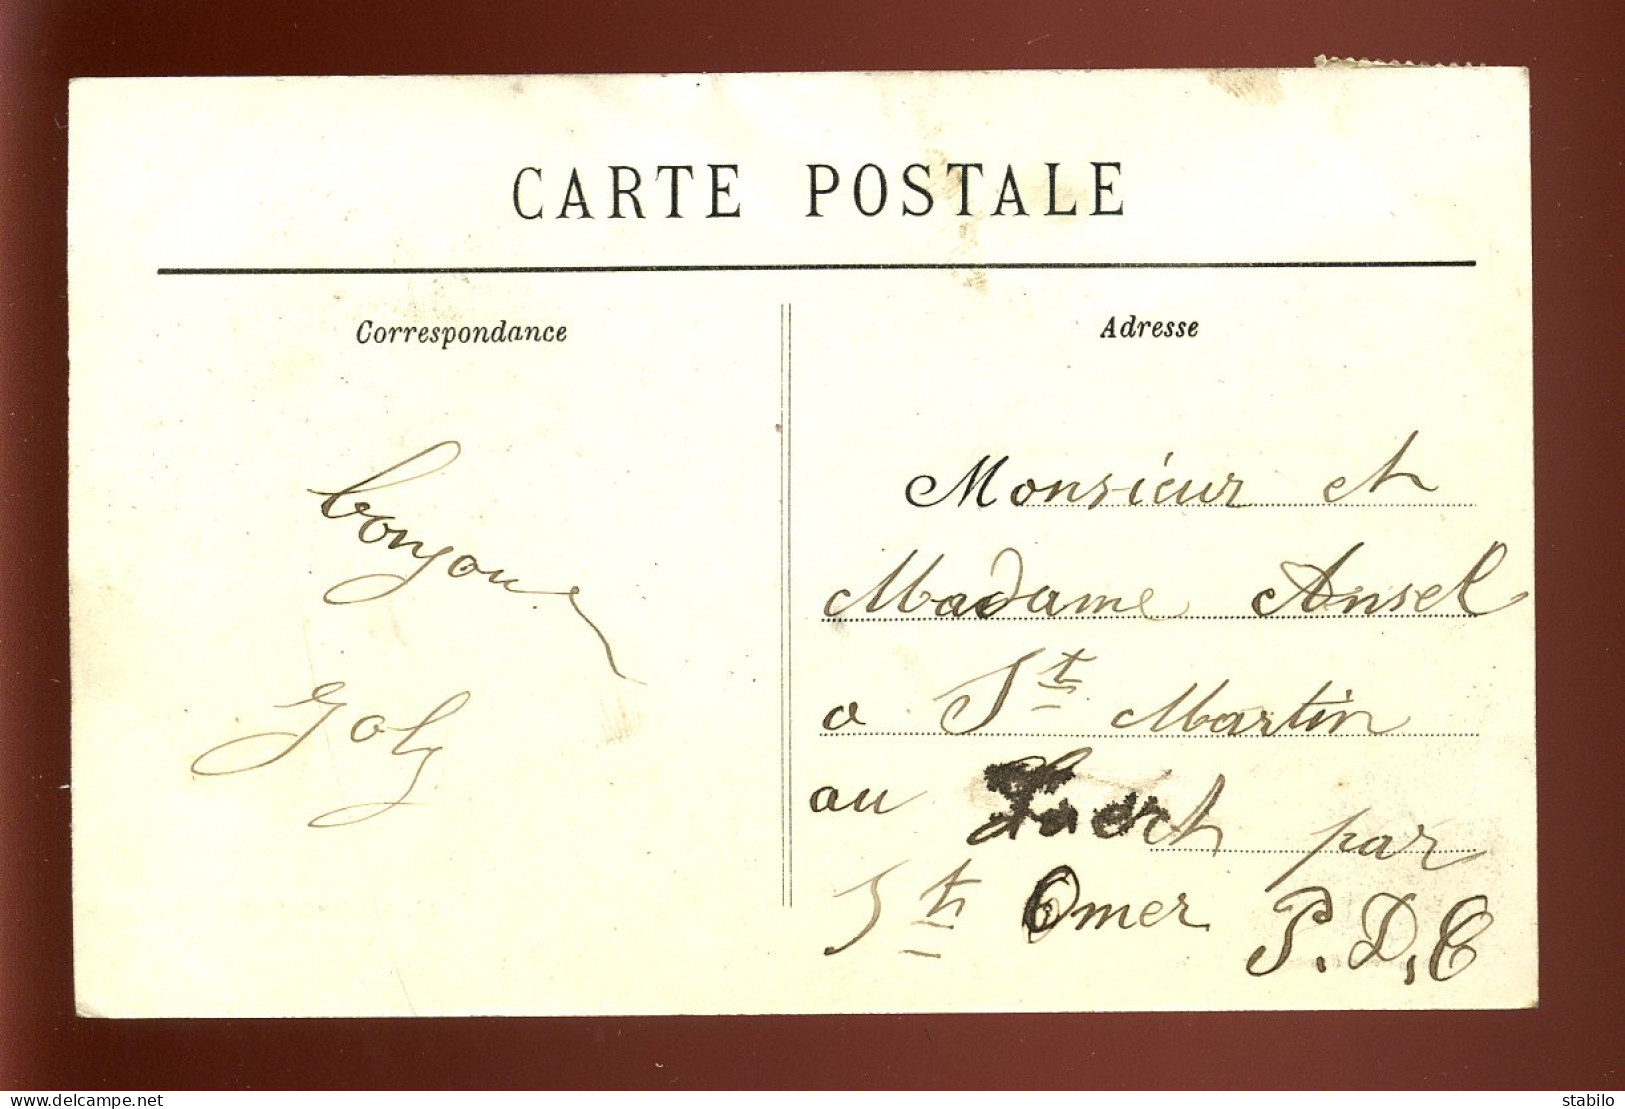 CARTE POSTALE
Correspondance
bonjour
Joly
Adresse
Monsieur et
Madame Ansel
a St Martin
au Laert par
St Omer P.D.C
www.delcampe.net
stabilo